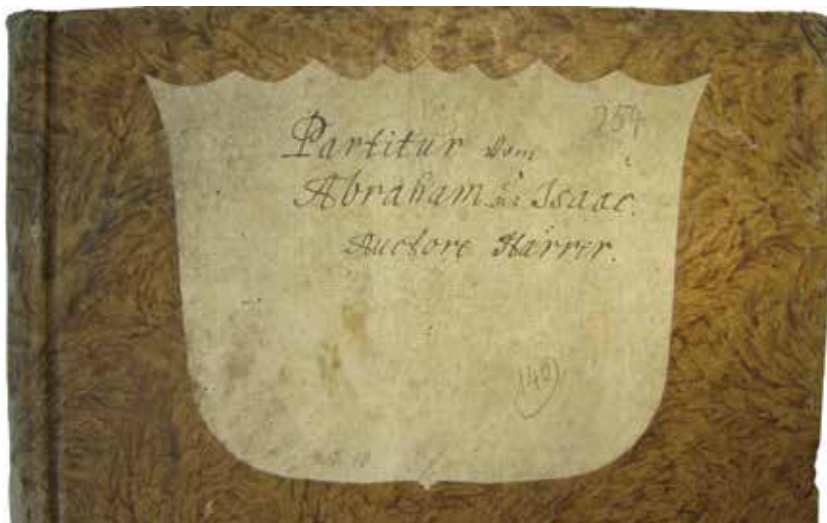 254
Partitur vom
Abraham u. Isaac.
Auctore Harrer.
140